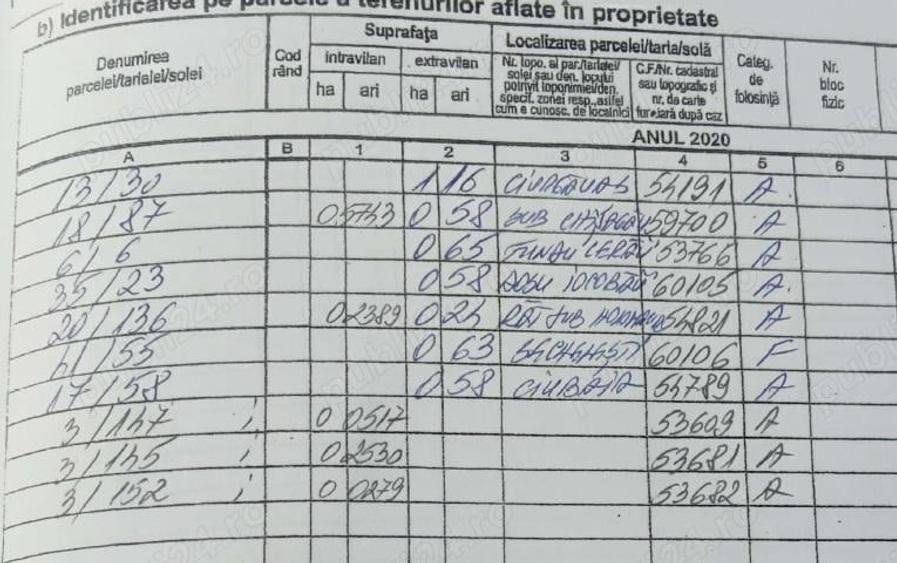 b) Identificarea pe parcele a terenurilor aflate în proprietate
Denumirea parcelei/tarlalei/solei
Cod rând
Suprafaţa
intravilan
extravilan
ha ari ha ari
Localizarea parcelei/tarla/solă
Nr. topo. al par./tarlalei/
solei sau den. locului
potrivit toponimiei/den.
specif. zonei resp., astfel
cum e cunosc. de localnici
C.F./Nr. cadastral
sau topografic şi
nr. da carte
funciară după caz
Categ. de folosinţă
Nr. bloc fizic
ANUL 2020
A B 1 2 3 4 5 6
13/30 1 16 54191 A
18/87 0.5743 0 58 SUB 59700 A
6/6 0 65 53766 A
35/23 0 58 DOSU 60105 A
20/136 0.2389 0 24 SUB 54821 A
11/55 0 63 60106 F
17/58 0 58 54789 A
3/147 i 0 0517 53609 A
3/145 i 0.2530 53681 A
3/152 i 0 0279 53682 A